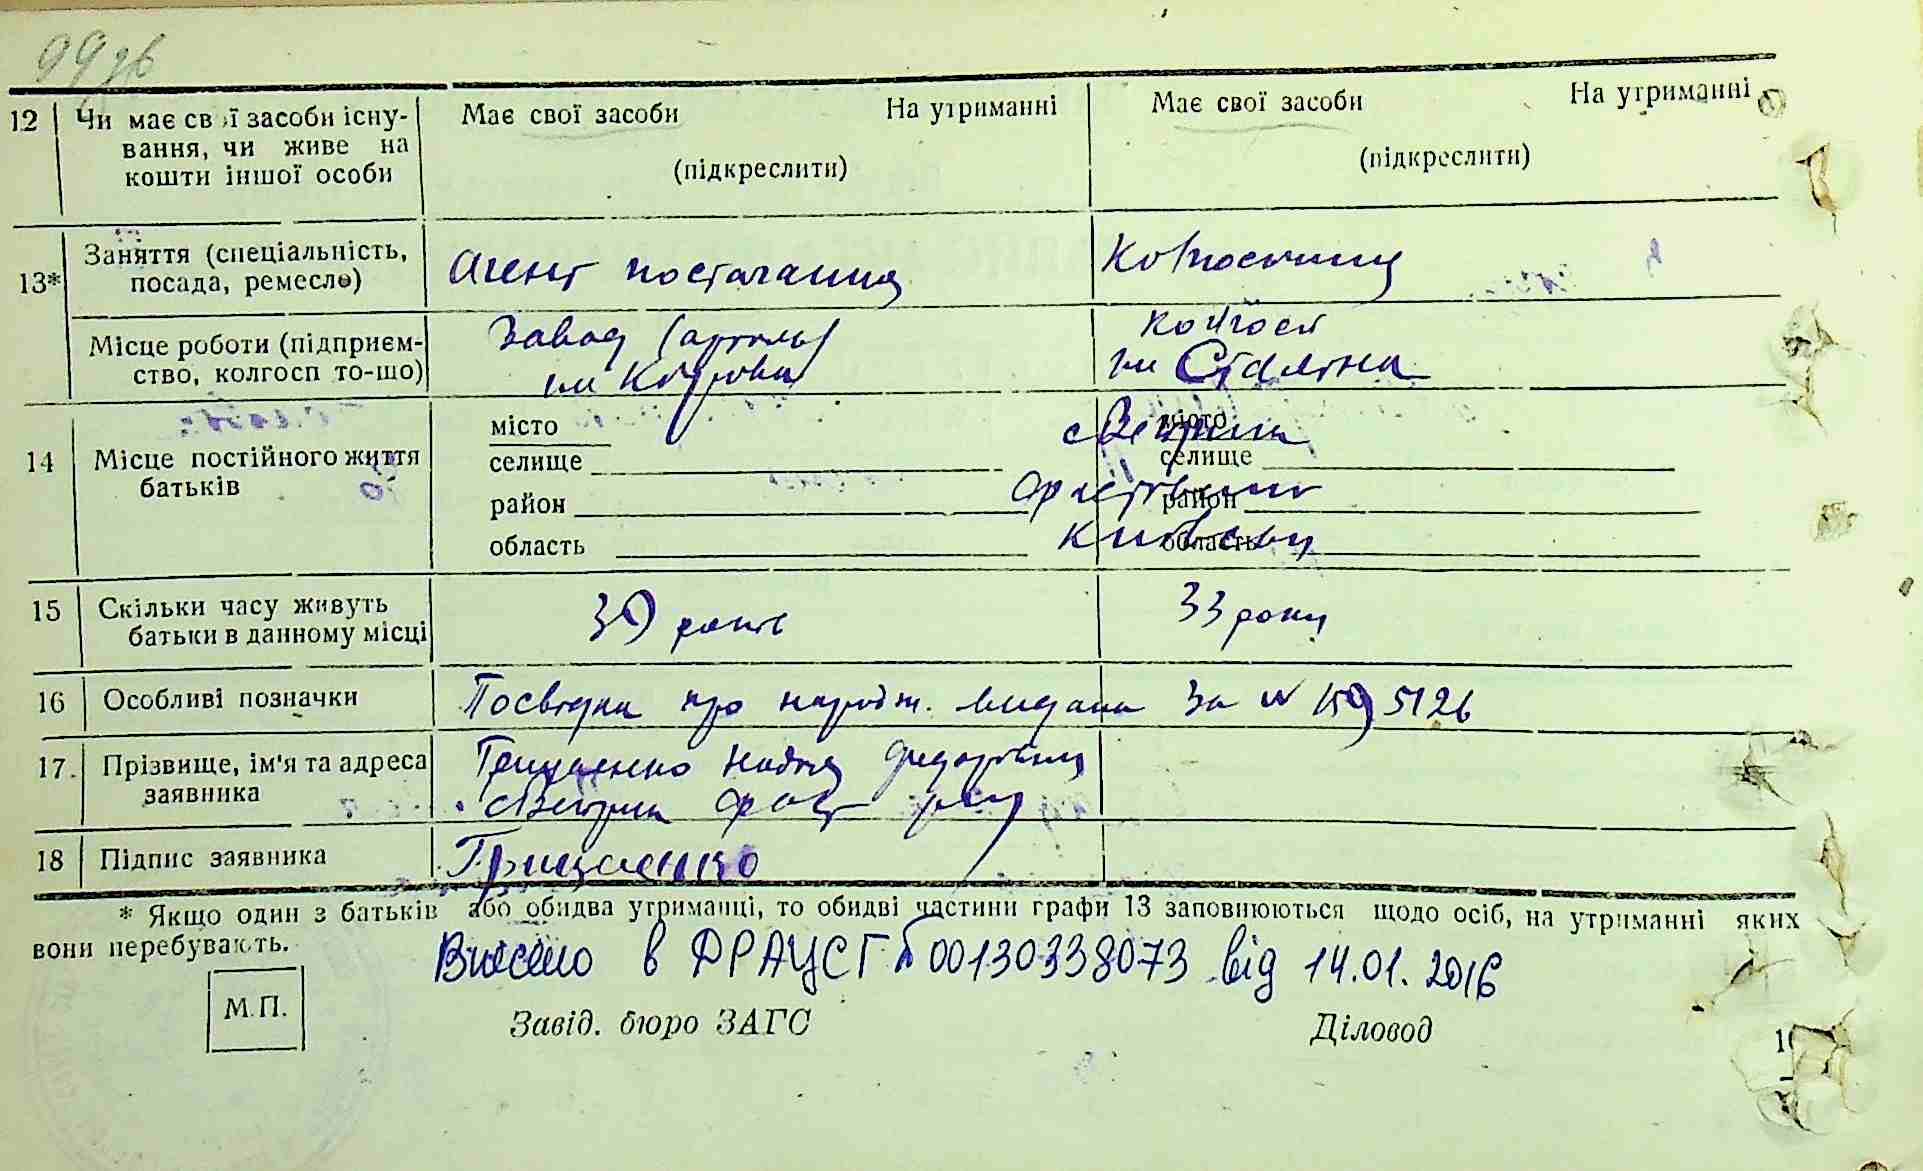 99 зв
12 Чи має свої засоби існу- Має свої засоби На утриманні Має свої засоби На утриманні
вання, чи живе на
кошти іншої особи (підкреслити) (підкреслити)
13* Заняття (спеціальність, Агент постачання Колгоспниця
посада, ремесло)
Місце роботи (підприєм- Завод (артель) колгосп
ство, колгосп то-що) ім Кірова ім Сталіна
14 Місце постійного життя місто місто
батьків селище селище
район район
область область Київська
15 Скільки часу живуть 39 років 33 роки
батьки в данному місці
16 Особливі позначки Посвідка про народж. видана За № 1595126
17. Прізвище, ім'я та адреса Грищенко Надія Федорівна
заявника
18 Підпис заявника Грищенко
* Якщо один з батьків або обидва утриманці, то обидві частини графи 13 заповнюються щодо осіб, на утриманні яких
вони перебувають.
Внесено в ДРАЦСГ 00130338073 від 14.01.2016
М.П.
Завід. бюро ЗАГС Діловод